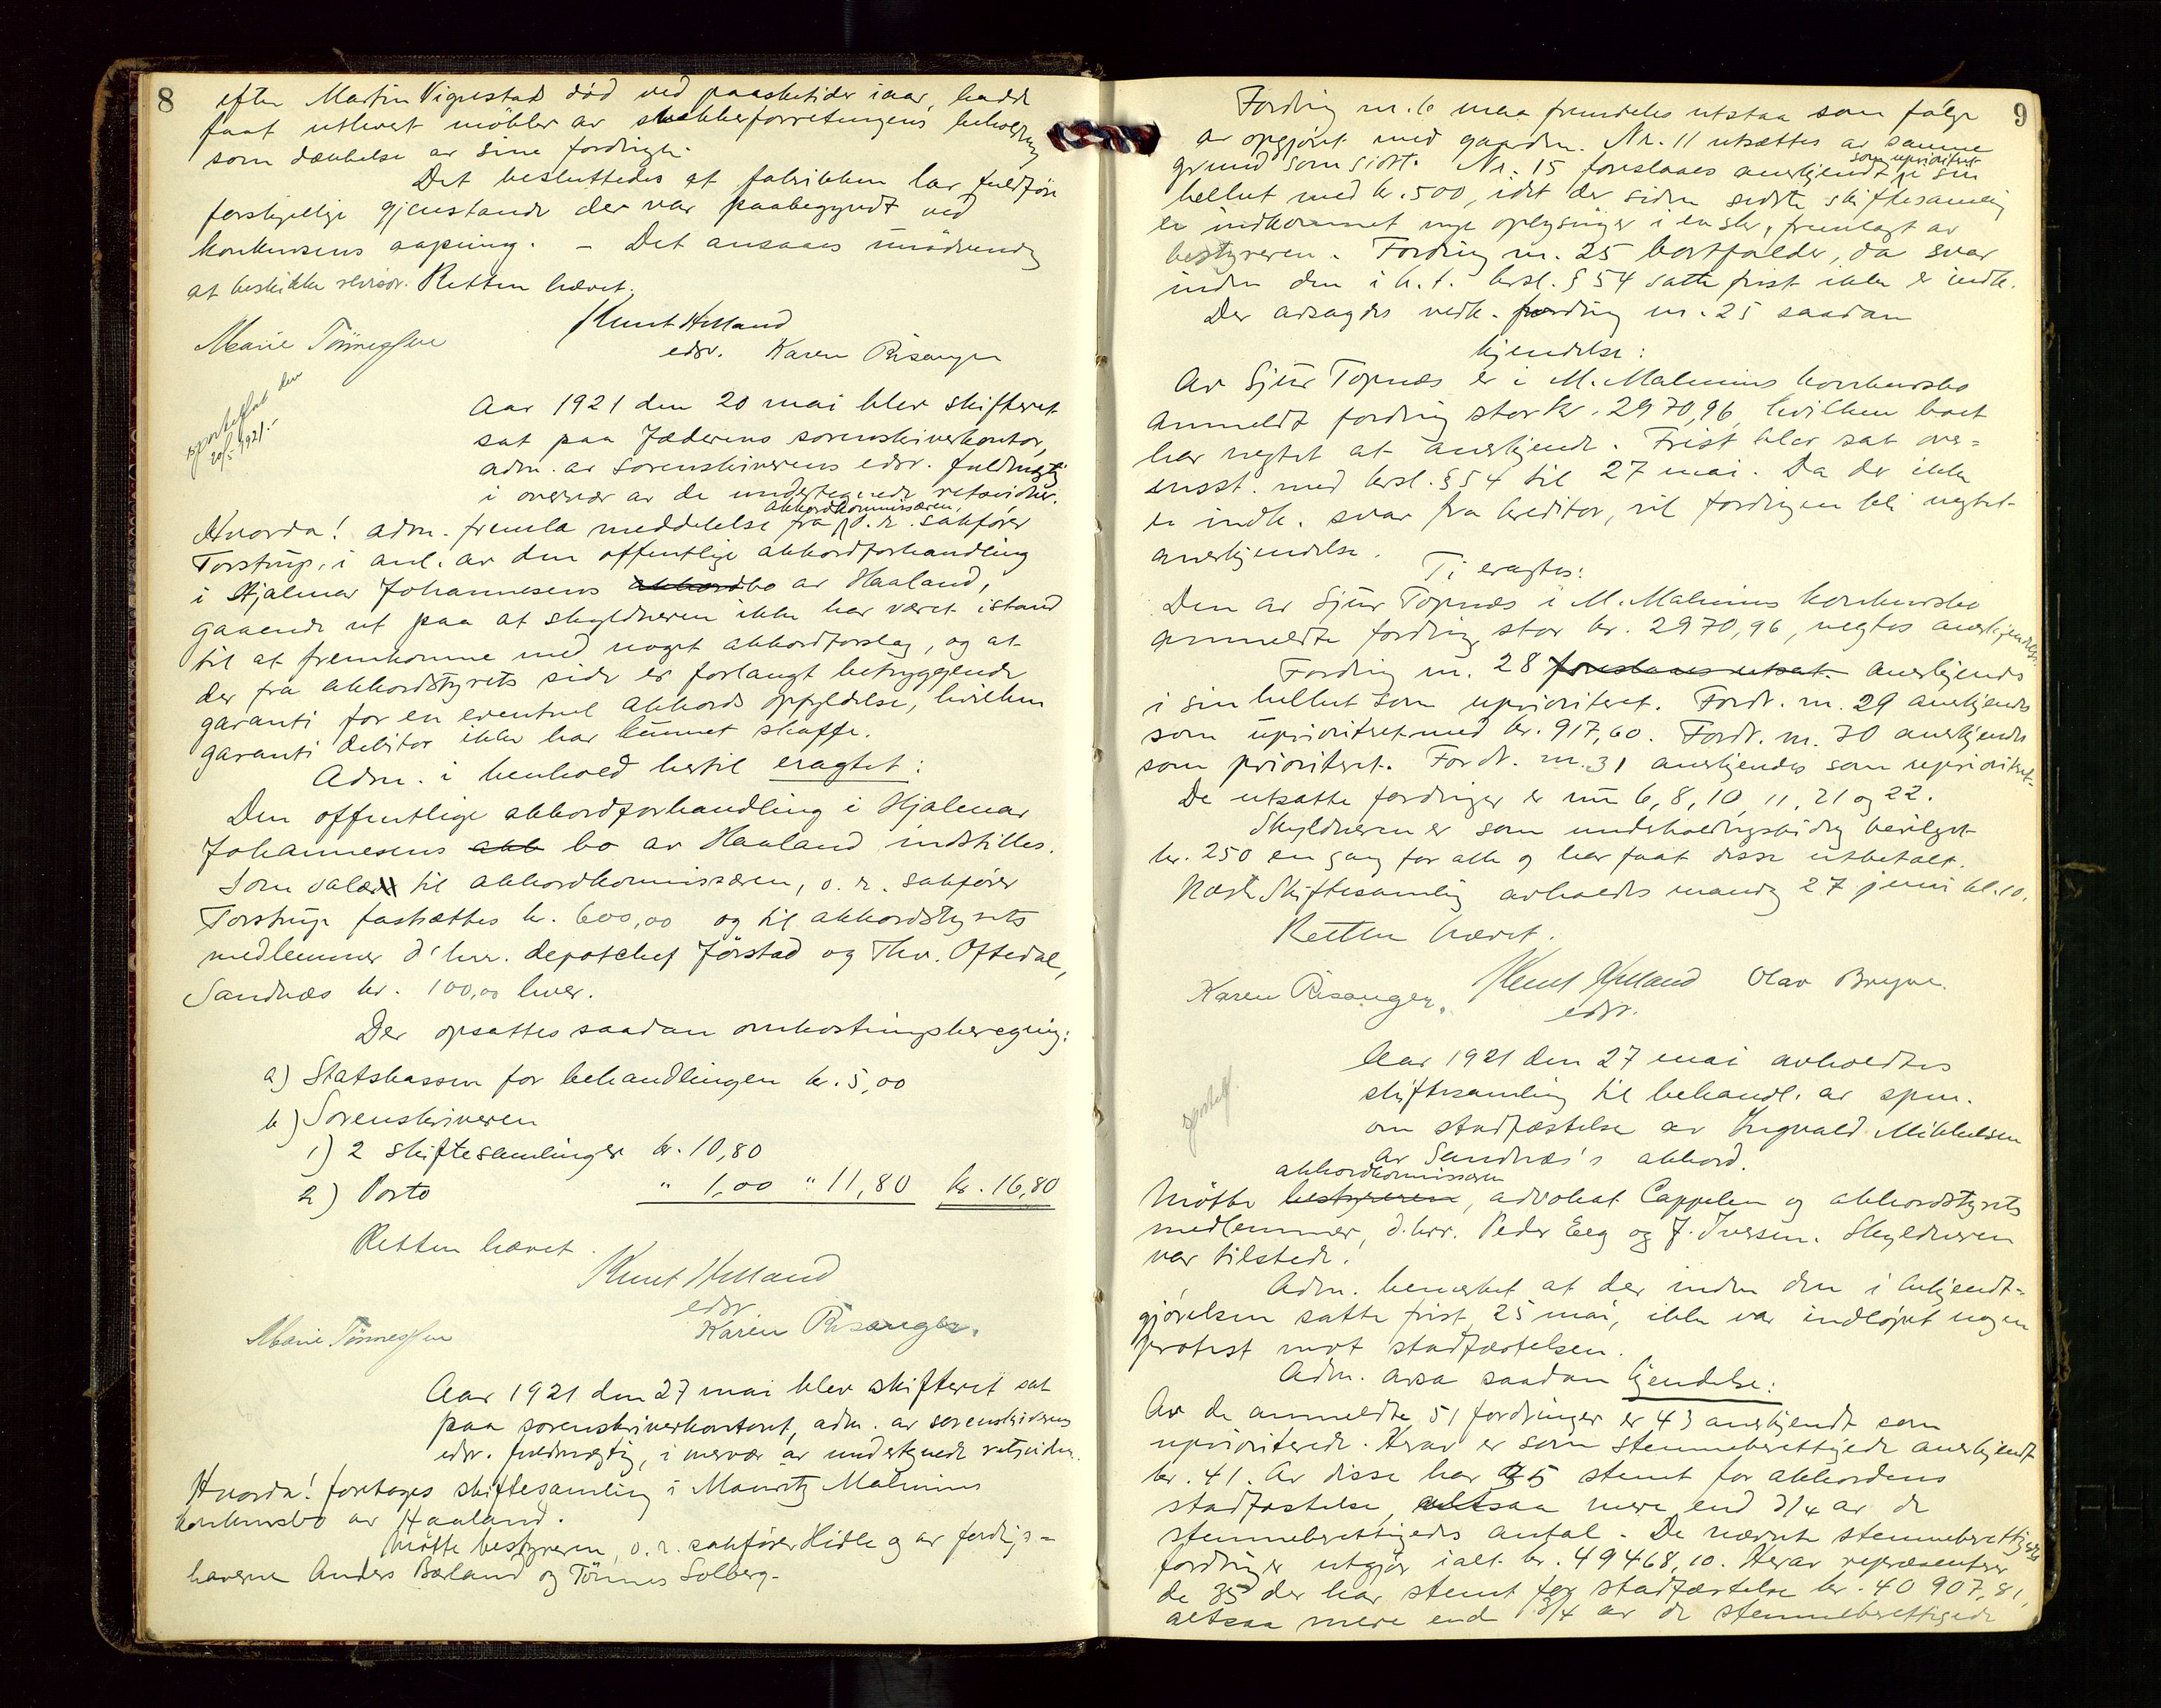 8
efter Martin Vigrestad død ved paasketider iaar, hadde
faat utlevert møbler av snekkerforretningens beholdning
som dækkelse av sine fordringer.
Det besluttedes at fabrikken lar fuldføre
forskjellige gjenstande der var paabegyndt ved
konkursens aapning. – Det ansaaes unødvendig
at beskikke revisor. Retten hævet.
Knut Helland
Marie Tønnessen
edsv. Karen Risanger
sportelfat den
20/5 1921.-
Aar 1921 den 20 mai blev skifteret
sat paa Jæderens sorenskriverkontor,
adm. av sorenskriverens edsv. fuldmægtig
i overvær av de undertegnede retsvidner.
akkordkommissæren,
Hvorda! adm. fremla meddelelse fra o.r. sakfører
Torstrup, i anl. av den offentlige akkordforhandling
i Hjalmar Johannesens akkordbo av Haaland,
gaaende ut paa at skyldneren ikke har været istand
til at fremkomme med noget akkordforslag, og at
der fra akkordstyrets side er forlangt betryggende
garanti for en eventuel akkords opfyldelse, hvilken
garanti debitor ikke har kunnet skaffe.
Adm. i henhold hertil eragtet:
Den offentlige akkordforhandling i Hjalmar
Johannesens akk bo av Haaland indstilles.
Som salær til akkordkommissæren, o.r. sakfører
Torstrup fastsættes kr. 600,00 og til akkordstyrets
medlemmer d'hrr. depotchef Jørstad og Thv. Oftedal,
Sandnæs kr. 100,00 hver.
Der opsattes saadan omkostningsberegning:
a) Statskassen for behandlingen kr. 5,00
b) Sorenskriveren
1) 2 skiftesamlinger kr. 10,80
2) Porto " 1,00 " 11,80 kr. 16,80
Retten hævet.
Knut Helland
edsv.
Marie Tønnessen
Karen Risanger.
Aar 1921 den 27 mai blev skifteret sat
paa sorenskriverkontoret, adm. av sorenskriverens
edsv. fuldmægtig, i overvær av undertegnede retsvidner.
Hvorda! foretages skiftesamling i Mauritz Malmins
konkursbo av Haaland.
Møtte bestyreren, o.r. sakfører Hidle og av fordrings=
haverne Anders Børland og Tønnes Solberg.
9
Fordring nr. 6 maa fremdeles utstaa som følge
av opgjøret med gaarden. Nr. 11 utsættes av samme
som uprioritert
grund som sidst. Nr. 15 foreslaaes anerkjendt i sin
helhet med kr. 500, idet der siden sidste skiftesamling
er indkommet nye oplysninger i en skr, fremlagt av
bestyreren. Fordring nr. 25 bortfalder, da svar
inden den i h.t. krsl. § 54 satte frist ikke er indk.
Der avsagdes vedk. fordring nr. 25 saadan
kjendelse:
Av Sjur Topnæs er i M. Malmins konkursbo
anmeldt fordring stor kr. 2970,96, hvilken boet
har negtet at anerkjende. Frist blev sat over=
ensst. med krsl. § 54 til 27 mai. Da der ikke
er indk. svar fra kreditor, vil fordringen bli negtet
anerkjendelse.
Ti eragtes:
Den av Sjur Topnæs i M. Malmins konkursbo
anmeldte fordring stor kr. 2970,96, negtes anerkjendelse.
Fordring nr. 28 foreslaaes utsat. anerkjendes
i sin helhet som uprioritert. Fordr. nr. 29 anerkjendes
som uprioritert med kr. 917,60. Fordr. nr. 30 anerkjendes
som prioritert. Fordr. nr. 31 anerkjendes som uprioritert.
De utsatte fordringer er nu 6, 8, 10, 11, 21 og 22.
Skyldneren er som underholdningsbidrag bevilget
kr. 250 en gang for alle og har faat disse utbetalt.
Næste Skiftesamling avholdes mandag 27 juni kl. 10.
Retten hævet.
Karen Risanger. Knut Helland Olav Bryne.
edsv.
sportelf.
Aar 1921 den 27 mai avholdtes
skiftesamling til behandl. av spm.
om stadfæstelse av Ingvald Mikkelsen
av Sandnæs's akkord.
akkordkommissæren
Møtte bestyreren, advokat Cappelen og akkordstyrets
medlemmer, d.hrr. Peder Eeg og J. Iversen. Skyldneren
var tilstede.
Adm. bemerket at der inden den i bekjendt-
gjørelsen satte frist, 25 mai, ikke var indløpet nogen
protest mot stadfæstelsen.
Adm. avsa saadan kjendelse:
Av de anmeldte 51 fordringer er 43 anerkjendt som
uprioriterede. Herav er som stemmeberettigede anerkjendt
kr. 41. Av disse har 35 stemt for akkordens
stadfæstelse, altsaa mere end 3/4 av de
stemmeberettigedes antal. De nævnte stemmeberettigede
fordringer utgjør ialt kr. 49468,10. Herav repræsenterer
de 35 der har stemt for stadfæstelse kr. 40 907,81,
altsaa mere end 3/4 av de stemmeberettigede